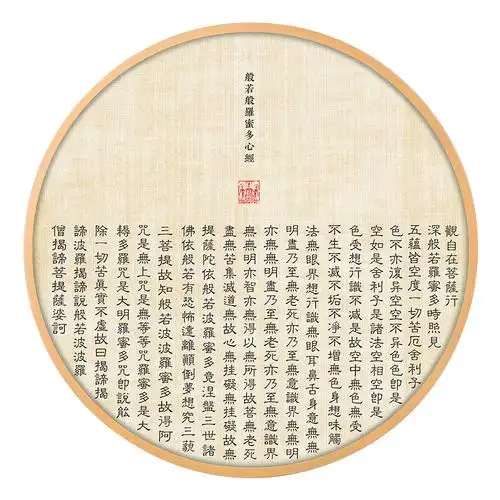 般若般羅蜜多心經
觀自在菩薩行
深般若羅蜜多時照見
五蘊皆空度一切苦厄舍利子
色不亦復异空空不异色色卽是
空如是舍利子是諸法相空卽是
色受想行識不減是故空中無色無受
不生不滅不垢不凈不增無色身想味觸
法無眼界想行識無眼耳鼻舌身意無無
明盡乃至無老死亦乃至無意識界無無明
亦無無明盡乃至無老死亦乃至無意識界
無無明亦智亦無得以無所得故菩無老死
盡無苦集滅道無故心無挂礙無挂礙故無
提薩陀依般若波羅蜜多竟涅盤三世諸
佛依般若有恐怖遠離顛倒夢想究三藐
三菩提故知般若波波羅蜜多故得阿
咒是無上咒是無等等咒羅蜜多是大
轉多羅咒是大明羅蜜多咒卽說能
除一切苦真實不虛故曰揭諦揭
諦波羅揭諦說般若波波羅
僧揭諦菩提薩婆訶